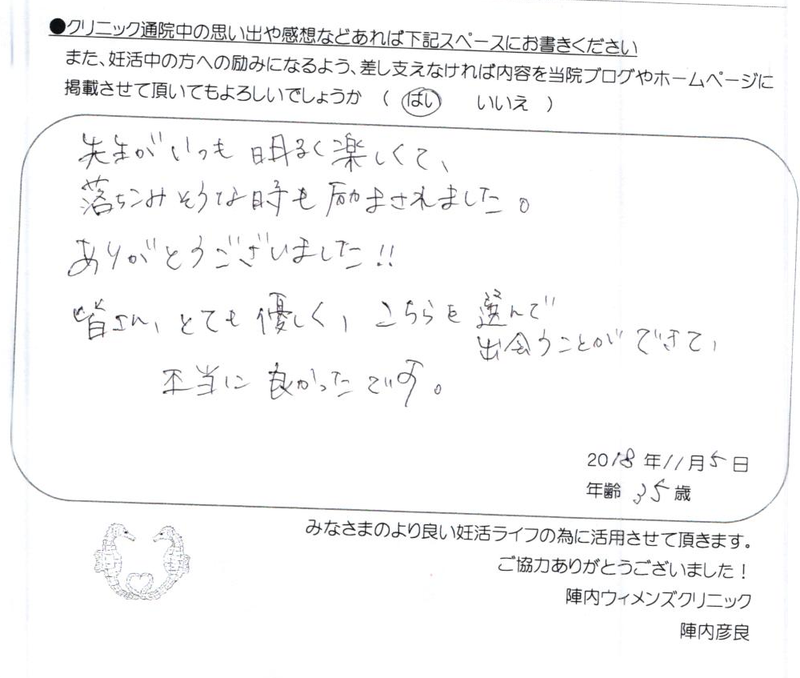 ●クリニック通院中の思い出や感想などあれば下記スペースにお書きください
また、妊活中の方への励みになるよう、差し支えなければ内容を当院ブログやホームページに
掲載させて頂いてもよろしいでしょうか ( はい いいえ )
先生がいつも明るく楽しくて、
落ちこみそうな時も励まされました。
ありがとうございました!!
皆さん、とても優しく、こちらを選んで
出会うことができて、
本当に良かったです。
2018年11月5日
年齢 35歳
みなさまのより良い妊活ライフの為に活用させて頂きます。
ご協力ありがとうございました！
陣内ウィメンズクリニック
陣内彦良